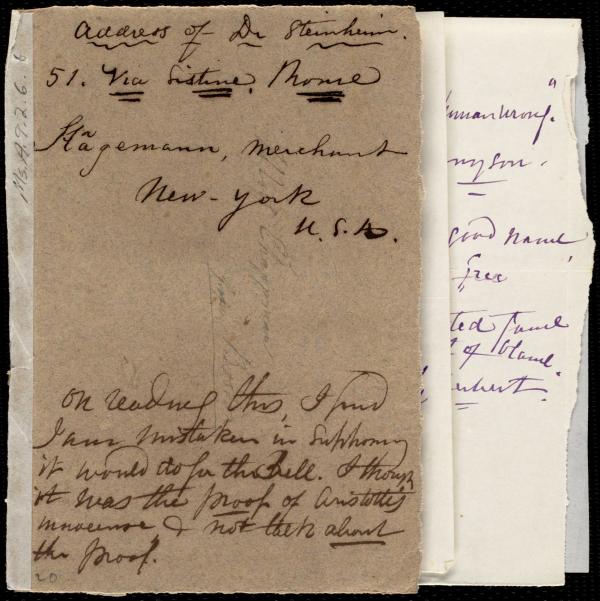 Address of Dr Steinheim.
51. Via Sistine. Rome
Stägemann, merchant
New-York
U. S. A.
On reading this, I find
I am mistaken in supposing
it would do for the Bell. I though
it was the proof of Aristotle's
innocence & not talk about
the proof.
20
Ms. A. 9. 2. 6.
human wrong."
nyson.
good name,
free
ted fame
of blame"
erbert.